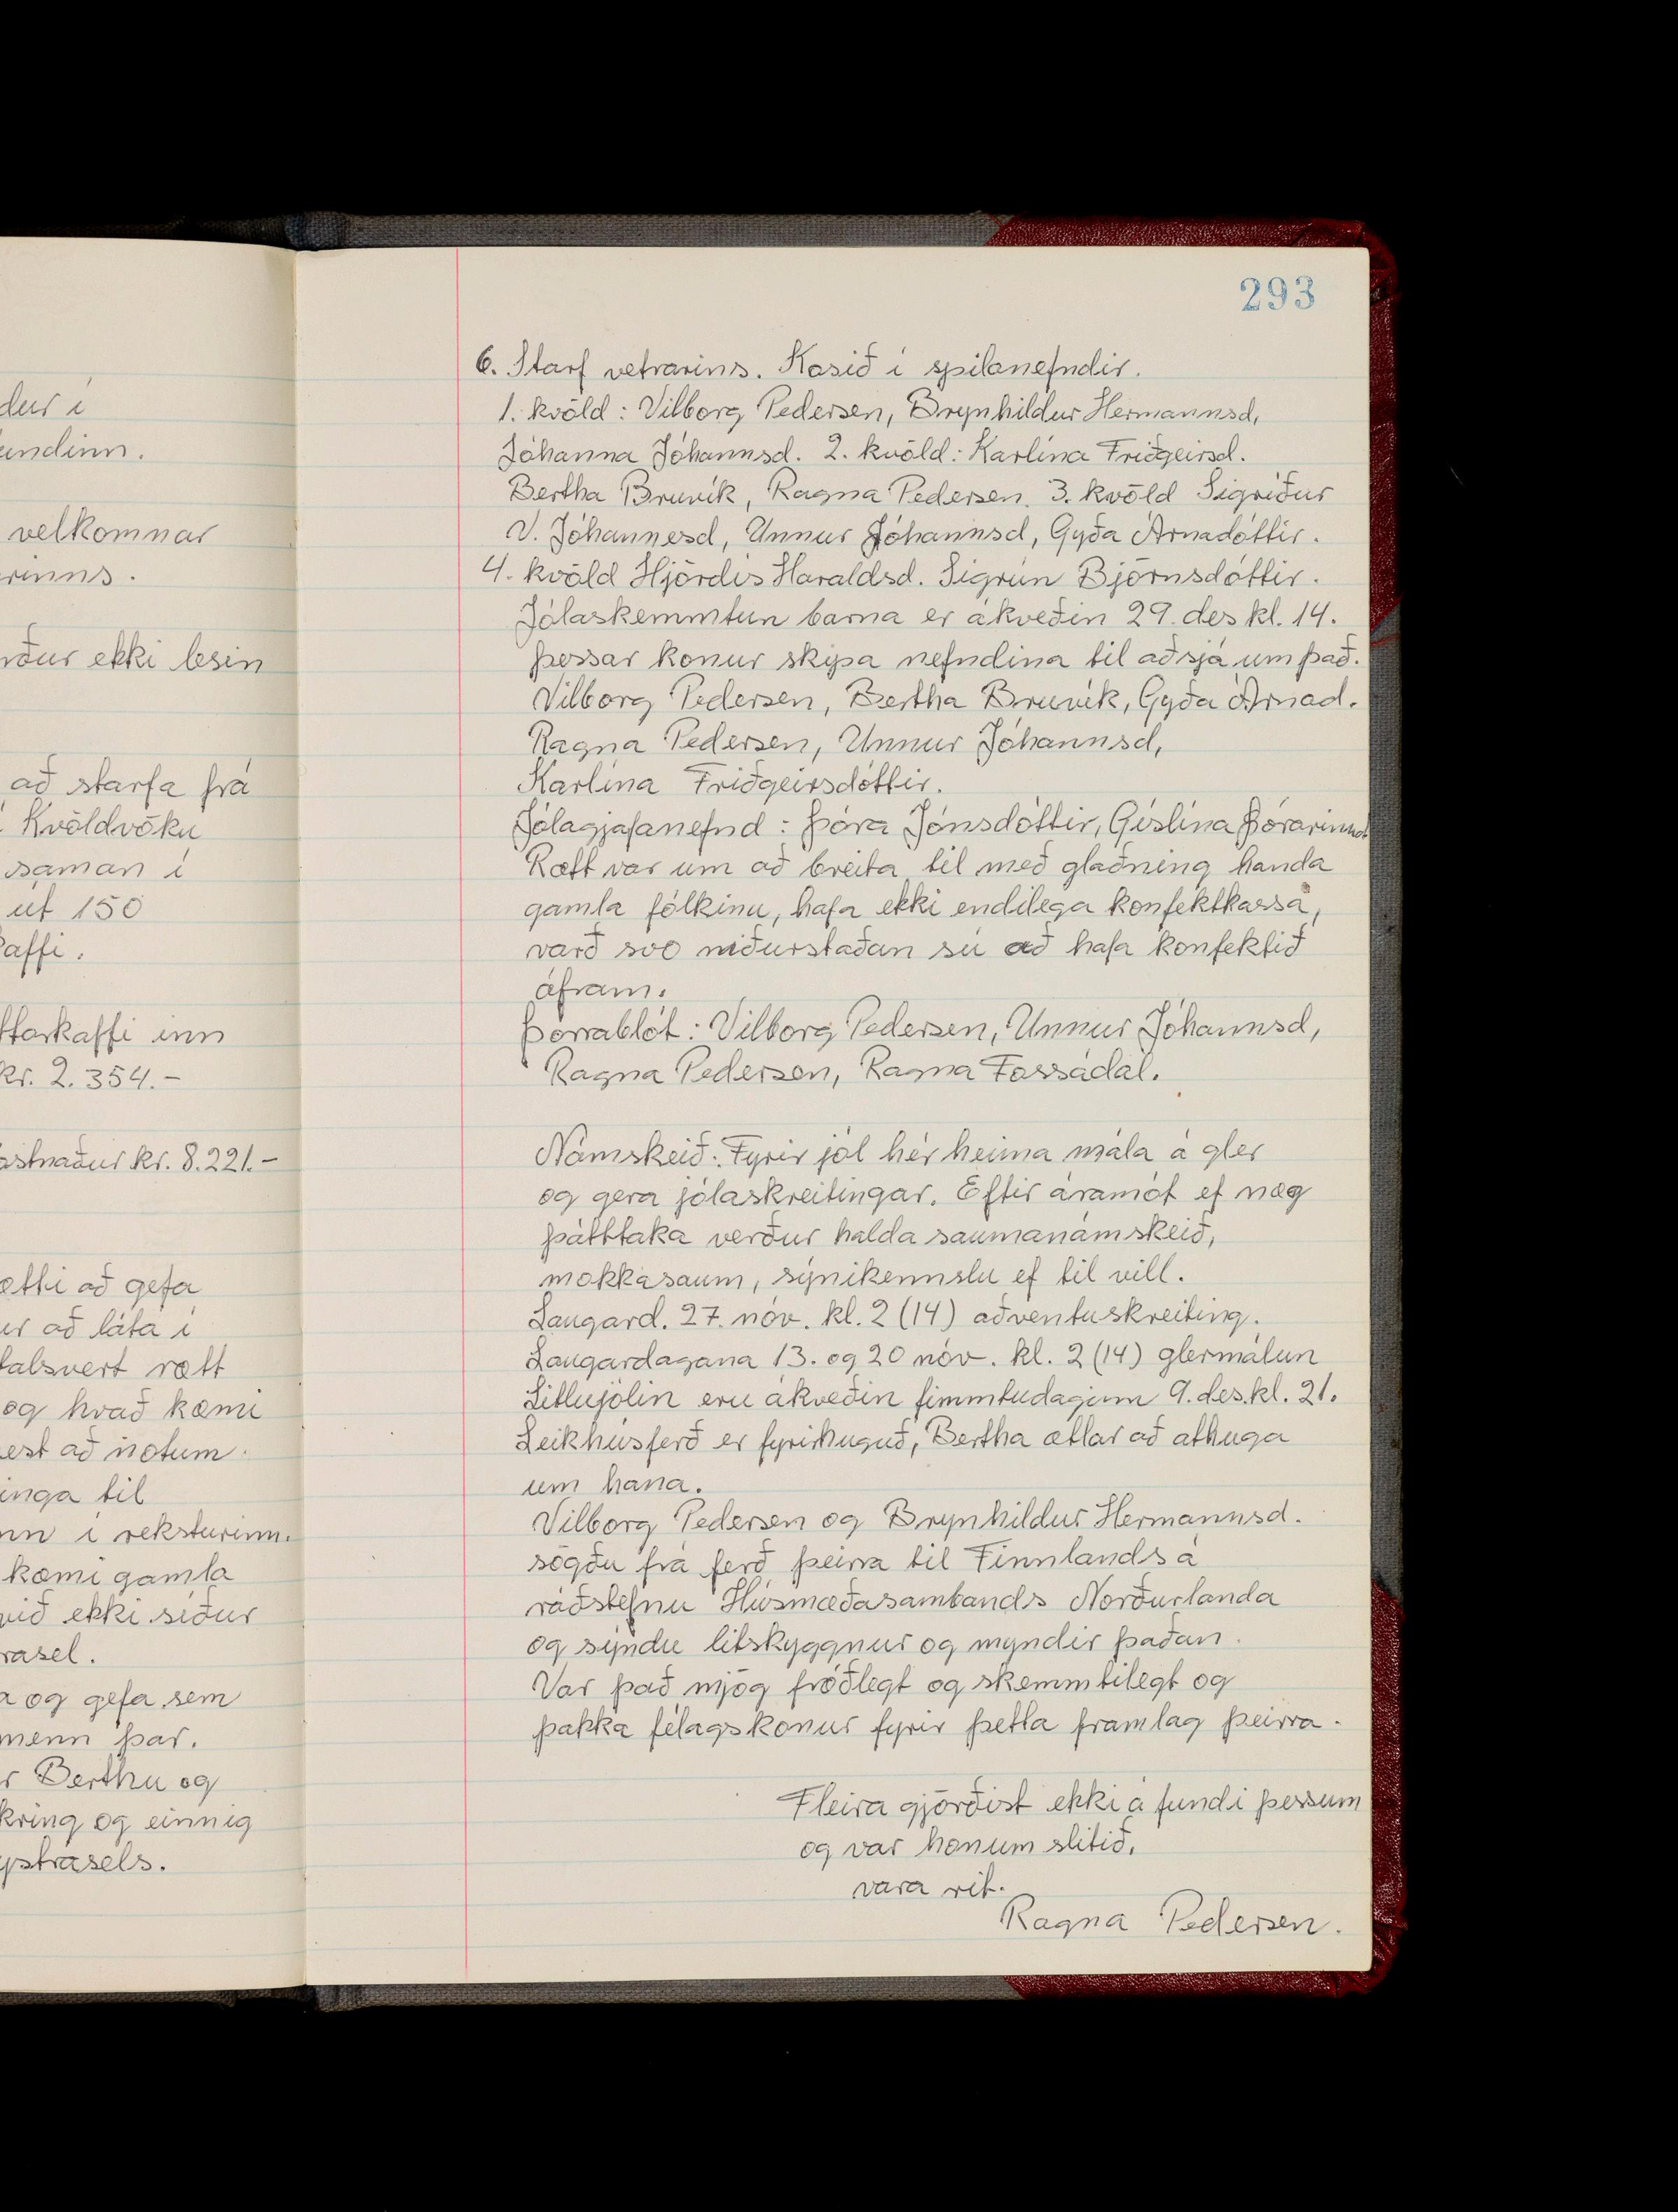 dur í
undinn.
velkomnar
rinns.
rður ekki lesin
að starfa frá
Kvöldvöku
saman í
út 150
affi.
ttarkaffi inn
kr. 2.354.-
astnaður kr. 8.221.-
ætti að gefa
ur að láta í
talsvert rætt
og hvað kæmi
est að notum.
inga til
nn í reksturinn.
kæmi gamla
við ekki síður
rasel.
a og gefa sem
menn þar.
r Berthu og
kring og einnig
ystrasels.
293
6. Starf vetrarins. Kosið í spilanefndir.
1. kvöld: Vilborg Pedersen, Brynhildur Hermannsd,
Jóhanna Jóhannsd. 2. kvöld: Karlína Friðgeirsd.
Bertha Bruvik, Ragna Pedersen. 3. kvöld Sigríður
V. Jóhannesd, Unnur Jóhannsd, Gyða Árnadóttir.
4. kvöld Hjördís Haraldsd. Sigrún Björnsdóttir.
Jólaskemmtun barna er ákveðin 29. des kl. 14.
Þessar konur skipa nefndina til að sjá um það.
Vilborg Pedersen, Bertha Bruvik, Gyða Árnad.
Ragna Pedersen, Unnur Jóhannsd,
Karlína Friðgeirsdóttir.
Jólagjafanefnd: Þóra Jónsdóttir, Gíslína Þórarinnsd
Rætt var um að breita til með glaðning handa
gamla fólkinu, hafa ekki endilega konfektkassa,
varð svo niðurstaðan sú að hafa konfektið
áfram.
Þorrablót: Vilborg Pedersen, Unnur Jóhannsd,
Ragna Pedersen, Ragna Fossádal.
Námskeið: Fyrir jól hér heima mála á gler
og gera jólaskreitingar. Eftir áramót ef næg
þátttaka verður halda saumanámskeið,
mokkasaum, sýnikennslu ef til vill.
Laugard. 27. nóv. kl. 2 (14) aðventuskreiting.
Laugardagana 13. og 20 nóv. kl. 2 (14) glermálun
Litlujólin eru ákveðin fimmtudaginn 9. des. kl. 21.
Leikhúsferð er fyrirhuguð, Bertha ætlar að athuga
um hana.
Vilborg Pedersen og Brynhildur Hermannsd.
sögðu frá ferð þeirra til Finnlands á
ráðstefnu Húsmæðasambands Norðurlanda
og sýndu litskyggnur og myndir þaðan.
Var það mjög fróðlegt og skemmtilegt og
þakka félagskonur fyrir þetta framlag þeirra.
Fleira gjörðist ekki á fundi þessum
og var honum slitið.
vara rit.
Ragna Pedersen.